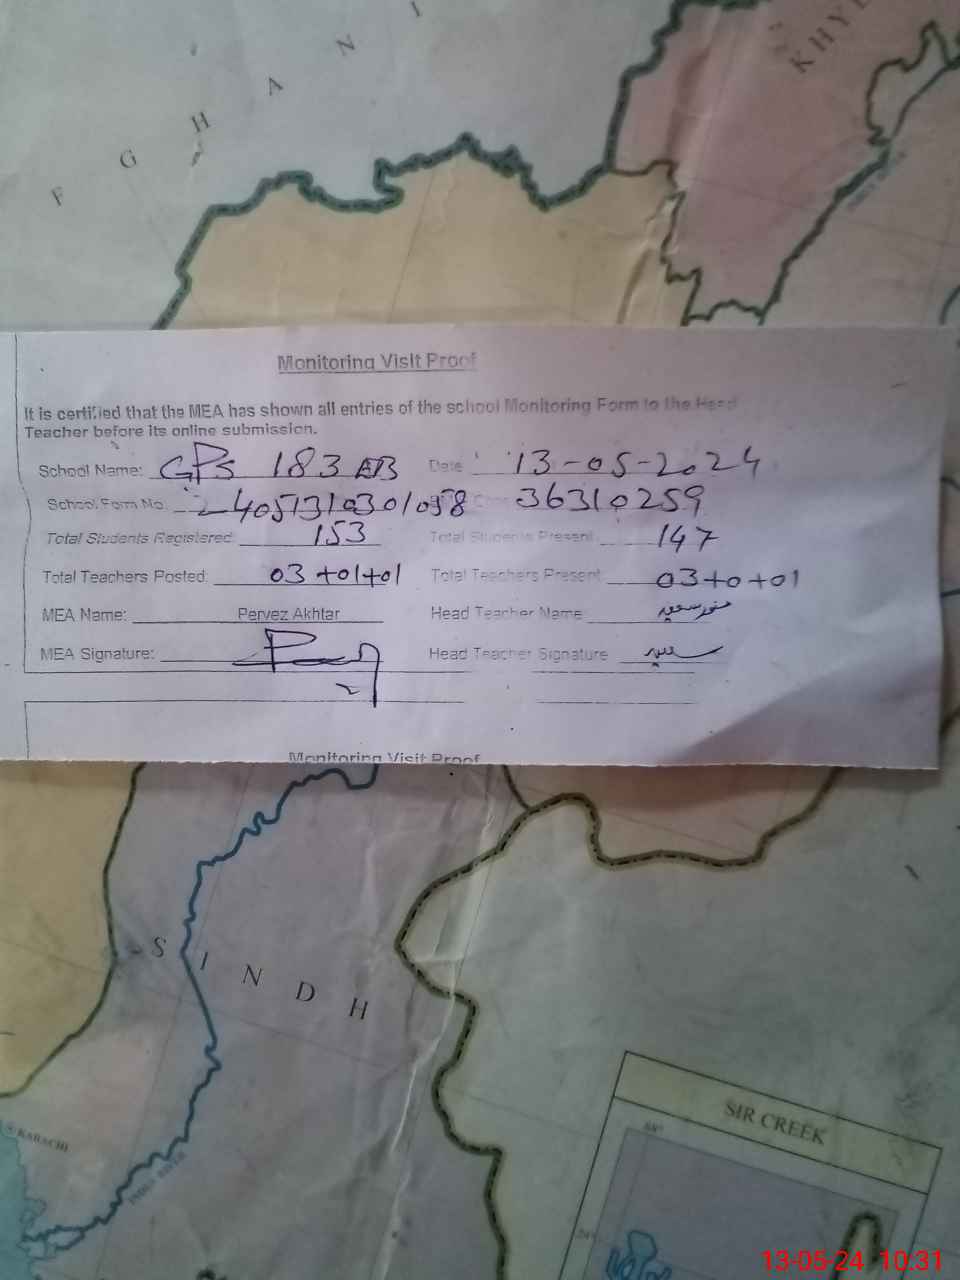 F G H A N I
KHYB
Monitoring Visit Proof
It is certified that the MEA has shown all entries of the school Monitoring Form to the Head
Teacher before its online submission.
School Name: GPS 183 EB Date 13-05-2024
School Form No. 24051310301058 36310259
Total Students Registered: 153 Total Students Present 147
Total Teachers Posted: 03+01+01 Total Teachers Present 03+0+01
MEA Name: Pervez Akhtar Head Teacher Name
MEA Signature: Head Teacher Signature سعید
Monitoring Visit Proof
SINDH
KARACHI
INDUS RIVER
SIR CREEK
68°
24°
13-05-24 10:31